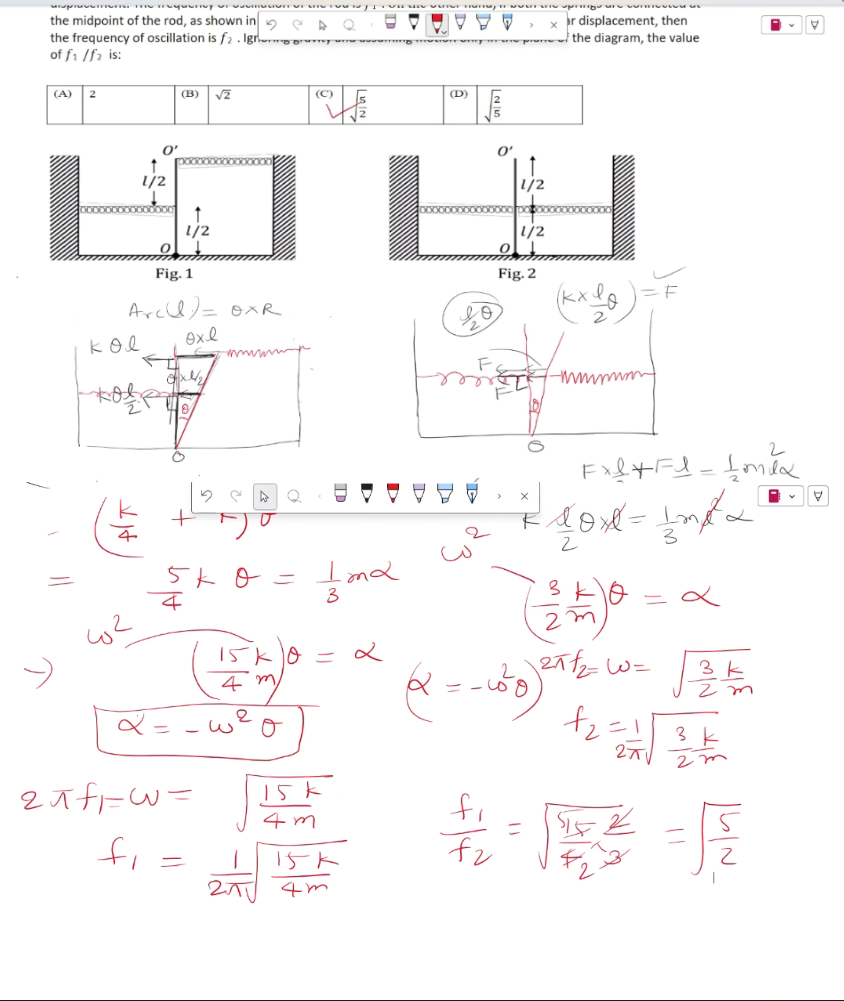 the midpoint of the rod, as shown in
r displacement, then
the frequency of oscillation is f₂ . Ign
the diagram, the value
of f₁ /f₂ is:
(A) 2 (B) √2 (C) √(5/2) (D) √(2/5)
O' O'
l/2 l/2
l/2 l/2
O O
Fig. 1 Fig. 2
Arc(l) = θ×R
l/2 θ (k×l/2 θ) = F
kθl θ×l
θ×l/2
kθl/2
θ
O
F
F
θ
O
F×l/2 + F l/2 = 1/3 ml²α
(k/4 + k) θ
k l/2 θ×l = 1/3 ml²α
= 5/4 k θ = 1/3 mα
ω²
(3/2 k/m)θ = α
ω²
→ (15 k/4 m)θ = α
(α = -ω²θ) 2πf₂ = ω = √(3/2 k/m)
α = -ω²θ
f₂ = 1/2π √(3/2 k/m)
2πf₁ = ω = √(15 k/4 m)
f₁/f₂ = √(15/4 2/3) = √(5/2)
f₁ = 1/2π √(15 k/4 m)